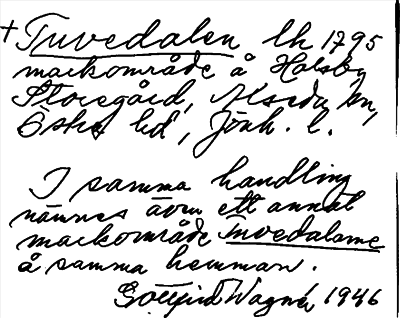 † Tuvedalen lh 1795
markområde å Holsby
Storegård, Alseda sn,
Östra hd, Jönk. l.
I samma handling
nämnes även ett annat
markområde Tuvedalarne
å samma hemman.
Gottfrid Wagnér 1946